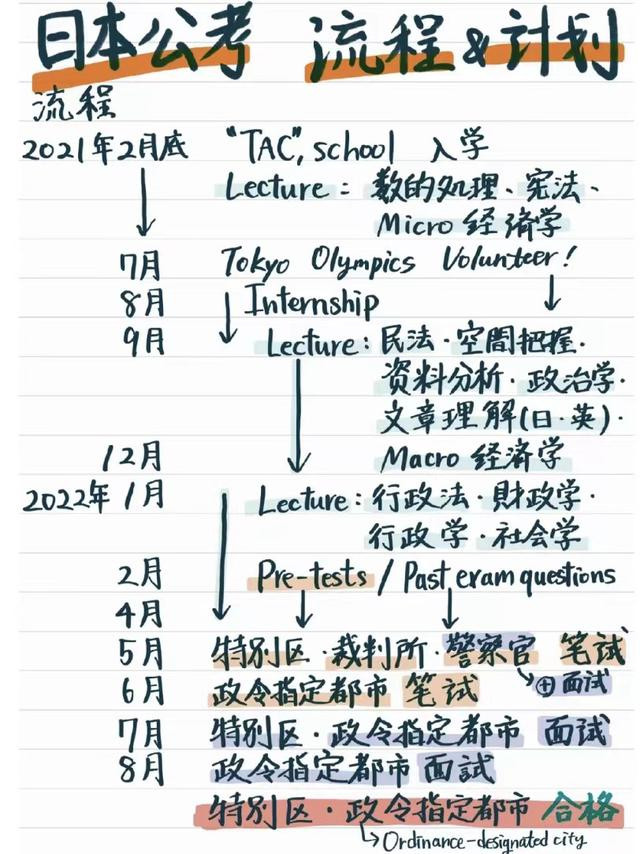 日本公考 流程&计划
流程
2021年2月底 "TAC", school 入学
Lecture: 数的処理、憲法、
Micro 経済学
7月 Tokyo Olympics Volunteer!
8月 Internship
9月 Lecture: 民法・空間把握・
资料分析・政治学・
文章理解(日・英)・
12月 Macro 経済学
2022年1月 Lecture: 行政法・財政学・
行政学・社会学
2月 Pre-tests / Past exam questions
4月
5月 特別区・裁判所・警察官 笔试
⊕面试
6月 政令指定都市 笔试
7月 特別区・政令指定都市 面试
8月 政令指定都市 面試
特別区・政令指定都市 合格
Ordinance-designated city